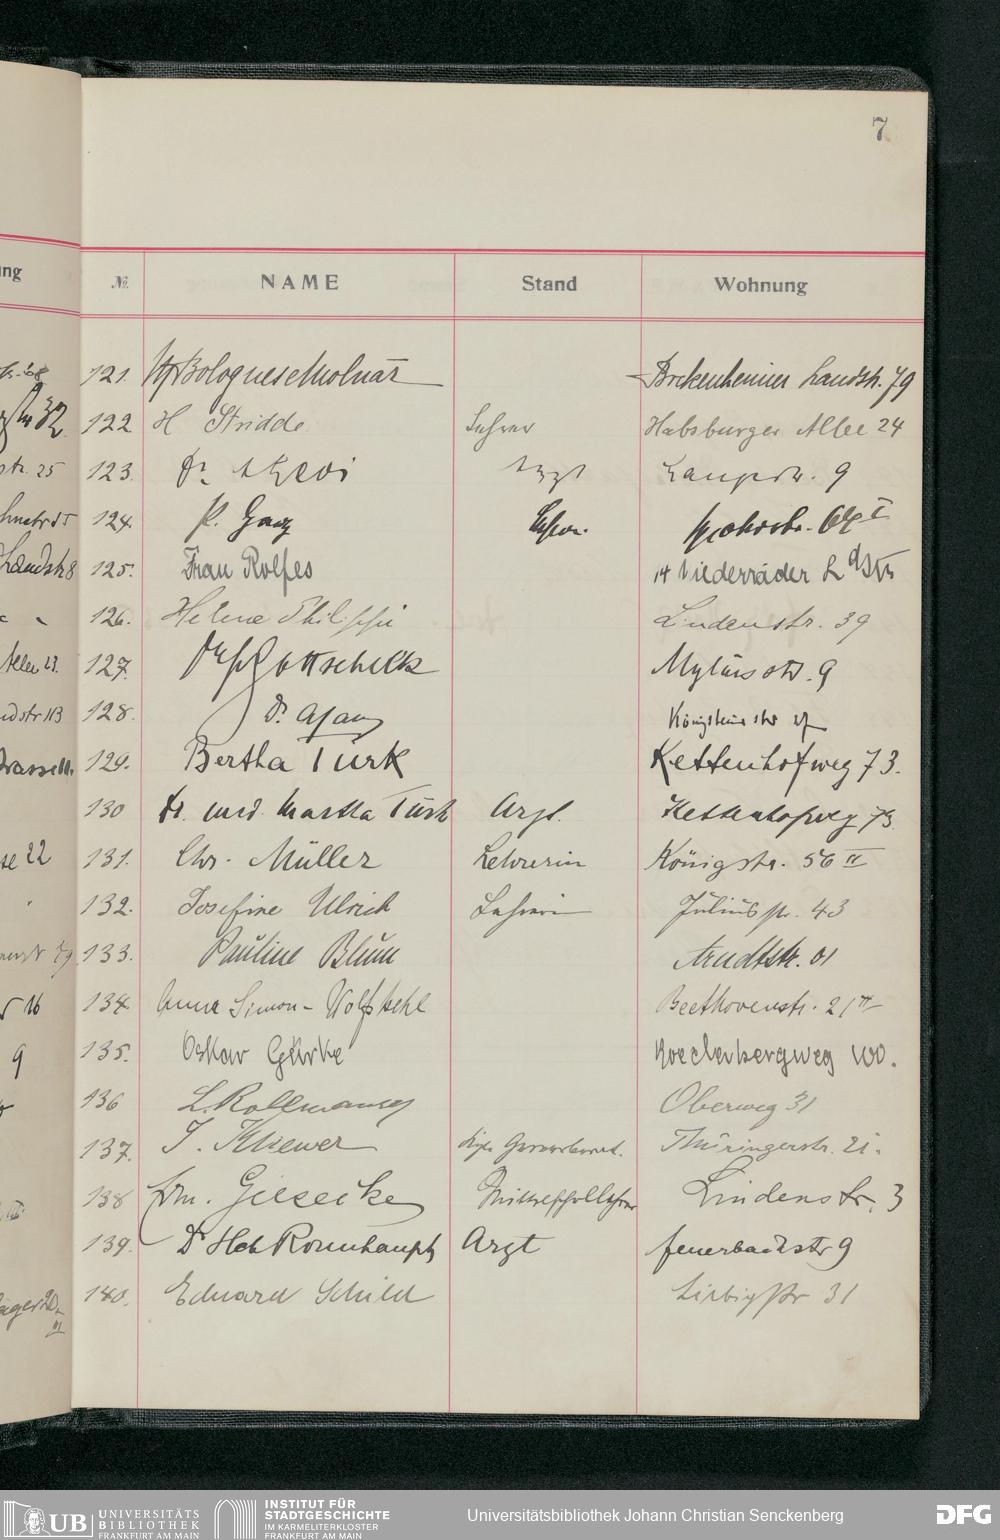 7
ung
№.
NAME
Stand
Wohnung
121. Bolognese Molnár Bockenheimer Landstr. 79
32
122 H Stridde Lehrer Habsburger Allee 24
str. 25
123. Dr. Arzt Langestr. 9
124. P. Lehrer. I
Landstr 8
125. Frau Rolfes 14 Niederräder Ldstr
126. Helene Philippi Lindenstr. 39
Allee 23.
127. Gottschalk Myliusstr. 9
dstr 113
128. Dr. Königsteinerstr
129. Bertha Türk Kettenhofweg 73.
130 Dr. med. Martha Türk Arzt. Kettenhofweg 73.
se 22
131. Chr. Müller Lehrerin Königstr. 56 II
132. Josefine Ulrich Lehrerin Juliusstr. 43
79
133. Pauline Blum Arndtstr. 01
16
134. Anna Simon - Wolfskehl Beethovenstr. 21 II
9
135. Oskar Gehrke Roederbergweg 100.
136 L. Oberweg 31
137. J. Kliewer Thüringerstr. 21.
138 Wm. Giesecke Mittelschullehrer Lindenstr. 3
139. Dr Hch Rosenhaupt Arzt Feuerbachstr 9
140. Eduard Schild Liebigstr 31
UB UNIVERSITÄTS
BIBLIOTHEK
FRANKFURT AM MAIN
INSTITUT FÜR
STADTGESCHICHTE
IM KARMELITERKLOSTER
FRANKFURT AM MAIN
Universitätsbibliothek Johann Christian Senckenberg
DFG